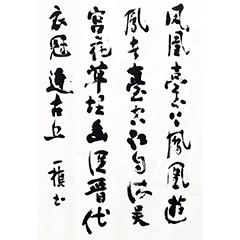 鳳凰臺上鳳凰遊
鳳去臺空江自流吳
宮花草埋幽徑晉代
衣冠成古丘